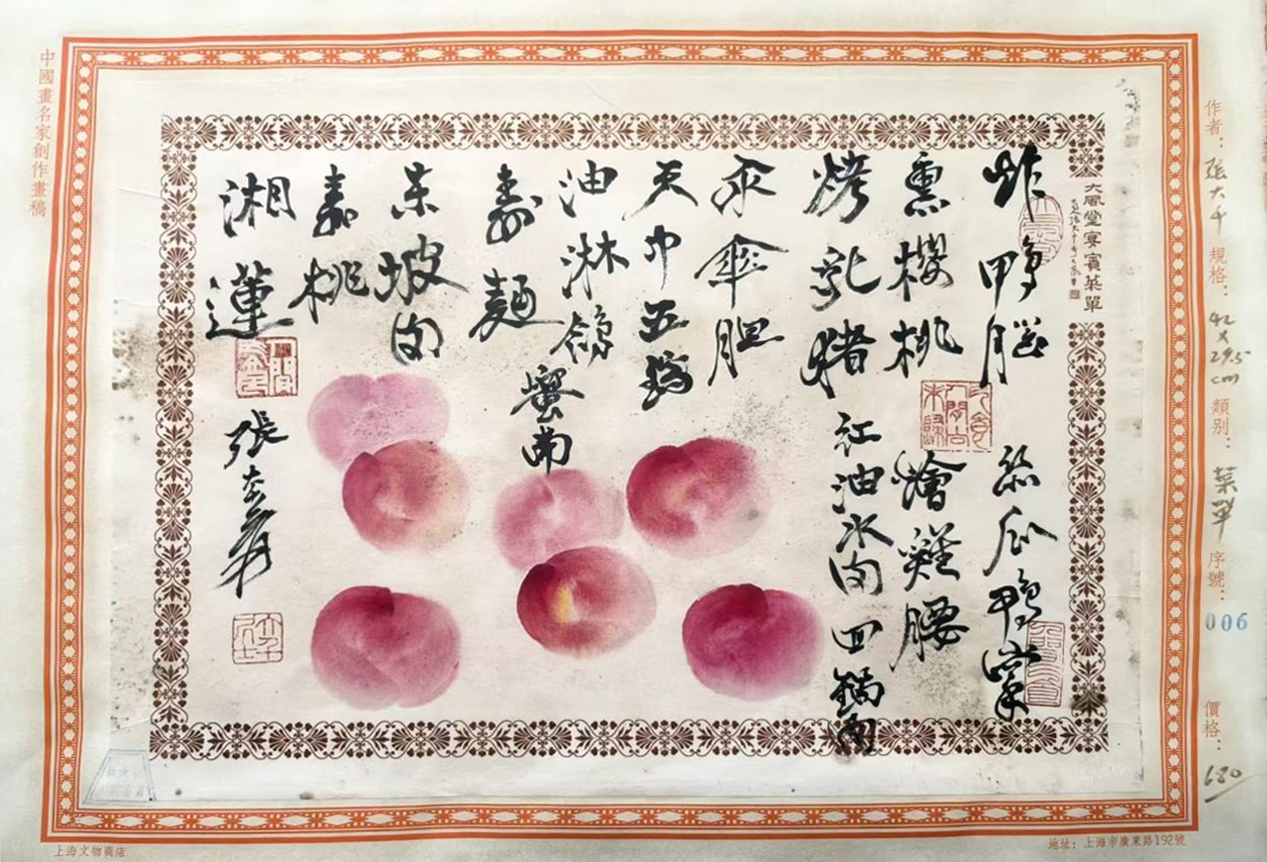 中國畫名家創作畫稿
作者：張大千 規格：42×29.5cm 類别：菜單 序號：006 價格：680
大風堂宴賓菜單
炸鴨腦 絲瓜鴨掌
熏櫻桃 燴雞腰
烤乳猪 紅油水肉 回鍋肉
汆傘胆
天巾五
油淋鴿 蜜南
壽麵
東坡肉
壽桃
湘蓮
張大爰
上海文物商店
地址：上海市廣東路192號